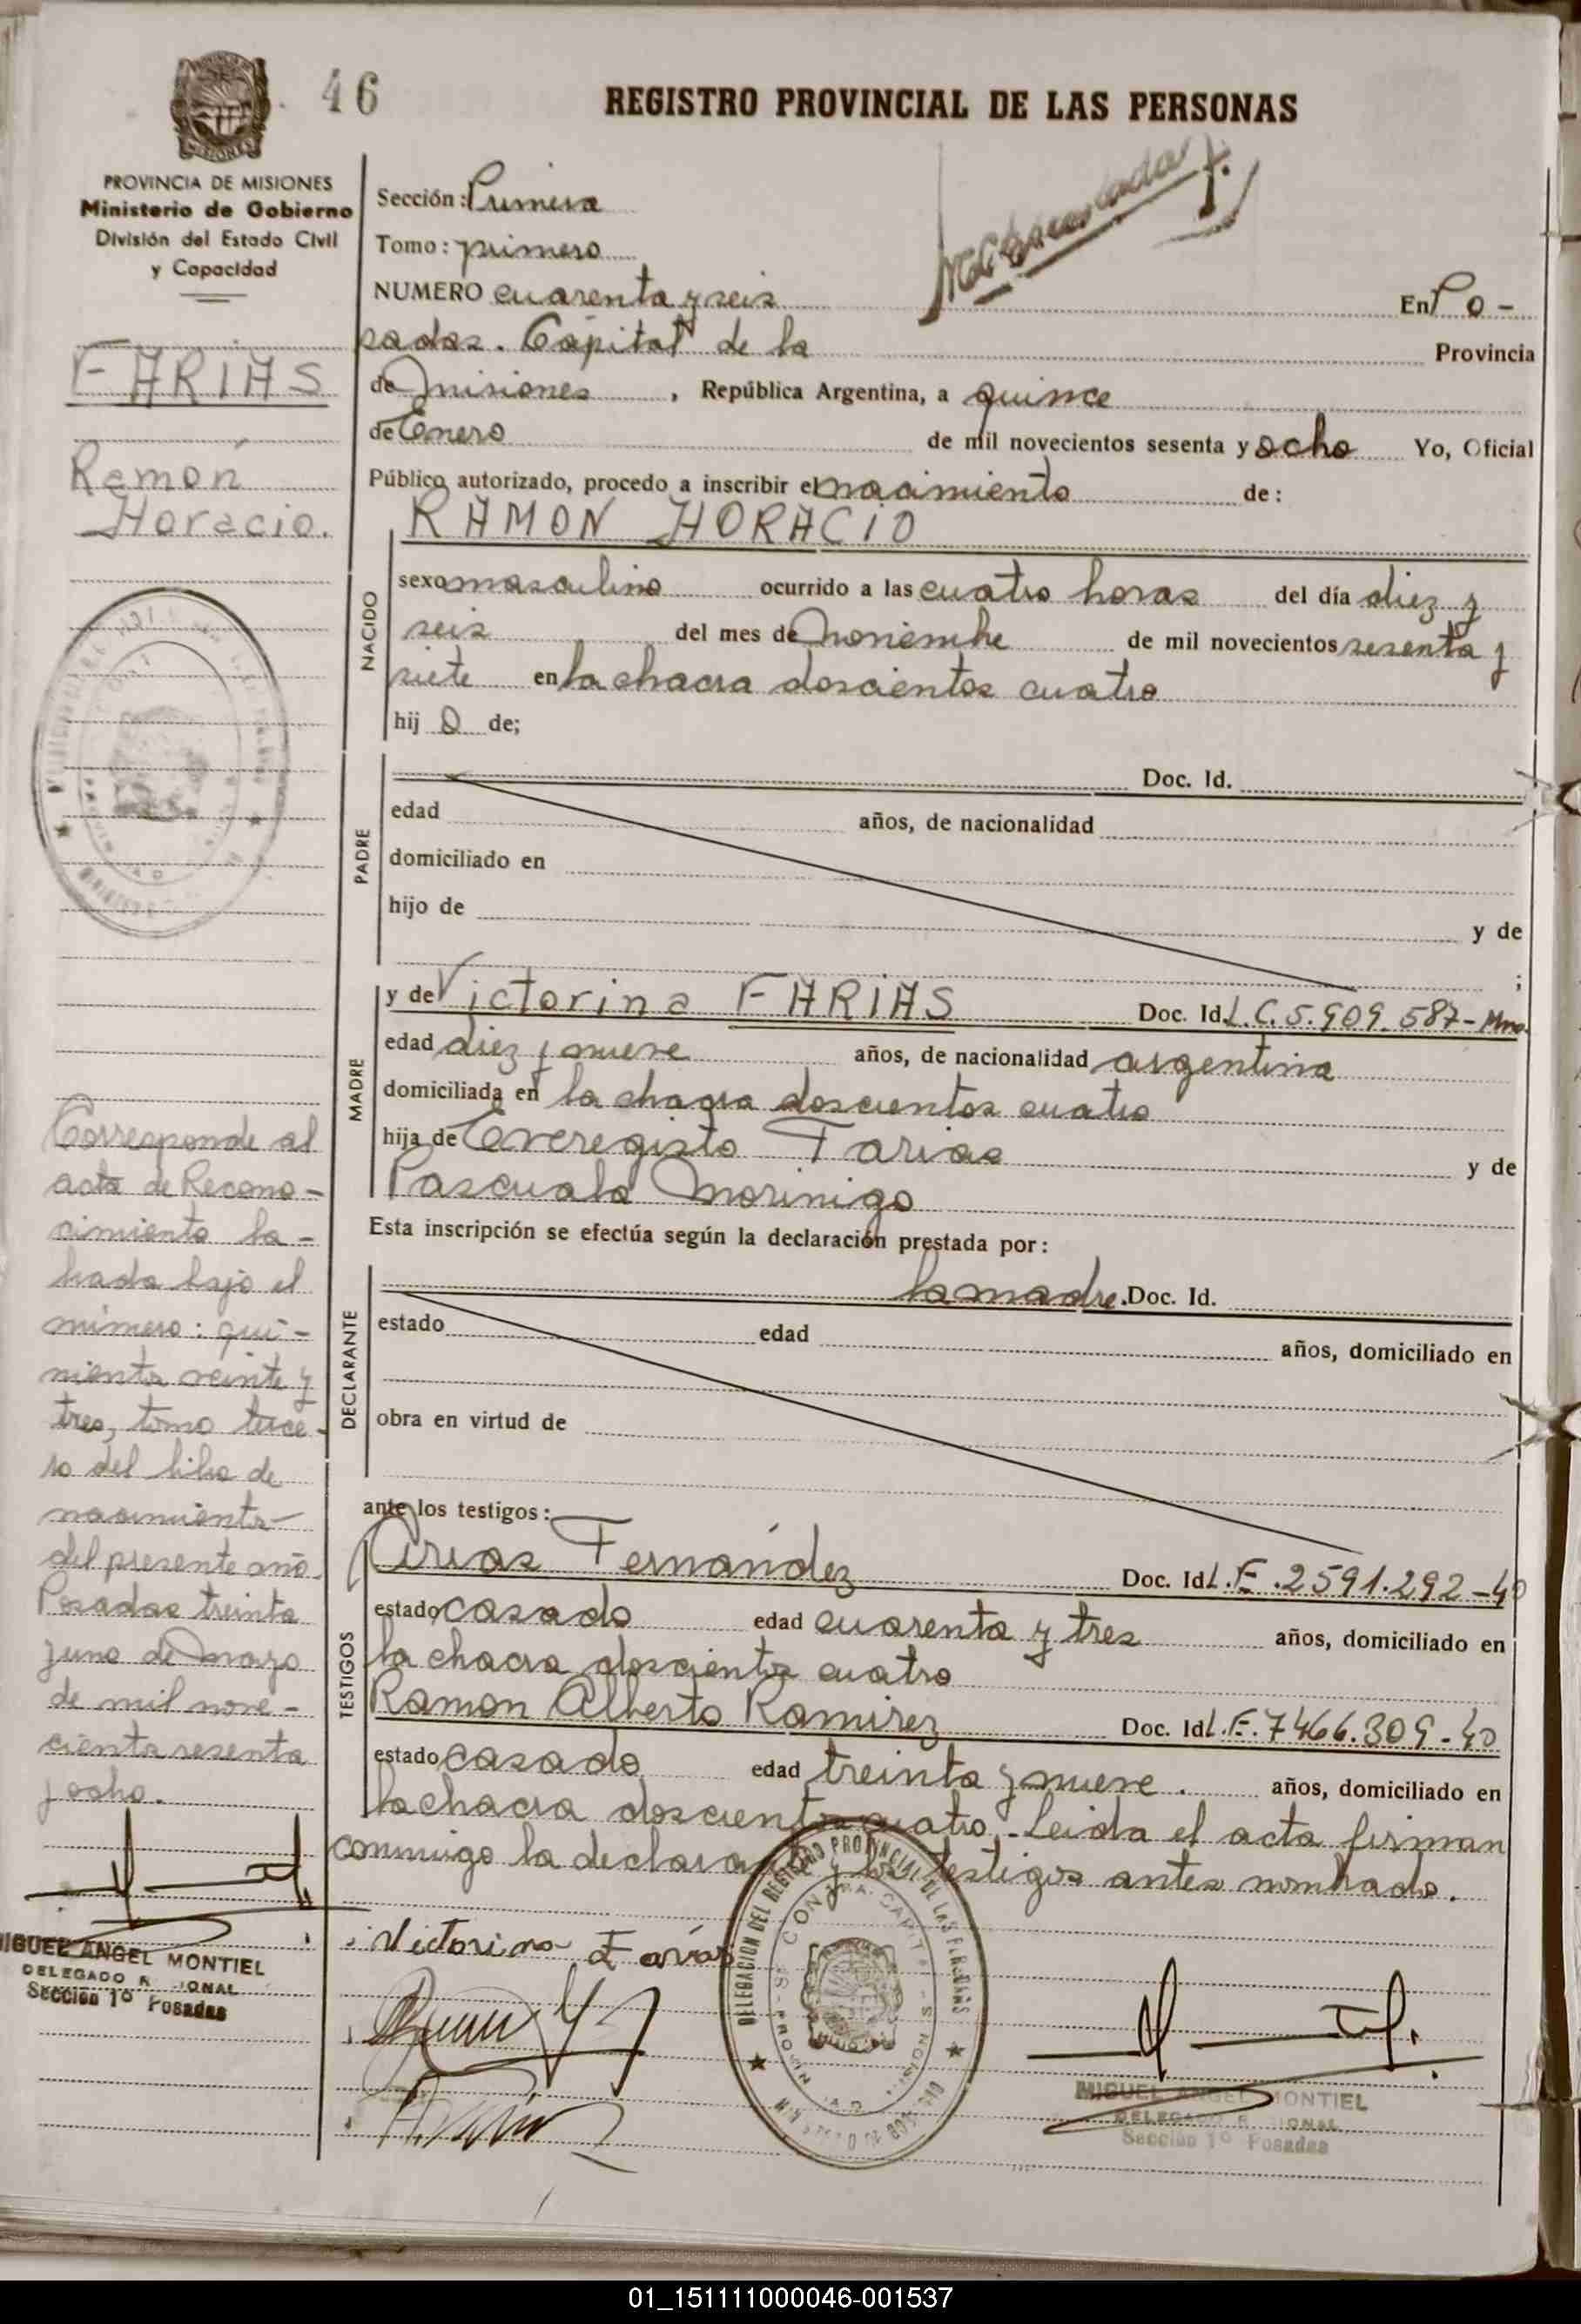 46
REGISTRO PROVINCIAL DE LAS PERSONAS
PROVINCIA DE MISIONES
Ministerio de Gobierno
División del Estado Civil
y Capacidad
FARIAS
Ramón
Horacio.
Sección: Primera
Tomo: primero
NUMERO cuarenta y seis En Po-
sadas. Capital de la Provincia
de Misiones, República Argentina, a quince
de Enero de mil novecientos sesenta y ocho Yo, Oficial
Público autorizado, procedo a inscribir el nacimiento de:
RAMON HORACIO
NACIDO
sexo masculino ocurrido a las cuatro horas del día diez y
seis del mes de Noviembre de mil novecientos sesenta y
siete en la chacra doscientos cuatro
hijo de;
PADRE
Doc. Id.
edad años, de nacionalidad
domiciliado en
hijo de y de
;
MADRE
y de Victorina FARIAS Doc. Id. L.C.5.909.587-Mnes.
edad diez y nueve años, de nacionalidad argentina
domiciliada en la chacra doscientos cuatro
hija de Everegisto Farias y de
Pascuala Morinigo
Esta inscripción se efectúa según la declaración prestada por:
DECLARANTE
la madre. Doc. Id.
estado edad años, domiciliado en
obra en virtud de
ante los testigos:
TESTIGOS
Arias Fernández Doc. Id L.E.2591.292-40
estado casado edad cuarenta y tres años, domiciliado en
la chacra doscientos cuatro
Ramon Alberto Ramirez Doc. Id L.E.7466.309-40
estado casado edad treinta y nueve. años, domiciliado en
la chacra doscientos cuatro.- Leida el acta firman
conmigo la declarante y los testigos antes nombrado.
Victorina Farias
Corresponde al
acta de Recono-
cimiento la-
brada bajo el
número: qui-
nientos veinte y
tres, tomo terce-
ro del libro de
nacimientos
del presente año.
Posadas treinta
y uno de Marzo
de mil nove-
cientos sesenta
y ocho.
MIGUEL ANGEL MONTIEL
DELEGADO
Sección 1º Posadas
DELEGACION DEL REGISTRO PROVINCIAL DE LAS PERSONAS
MIGUEL ANGEL MONTIEL
DELEGADO
Sección 1º Posadas
01_151111000046-001537